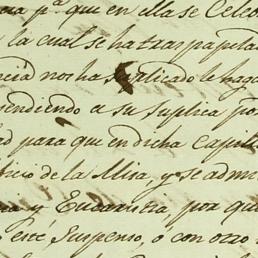 para q.e en ella se Celeb
la cual se ha traspapela
ncia nos ha suplicado le haga
endiendo a su suplica por
ad para que en dicha Capill
ficio de la Misa, y se admi
ia y Eucaristia, por que
esté Suspenso, ó con otro